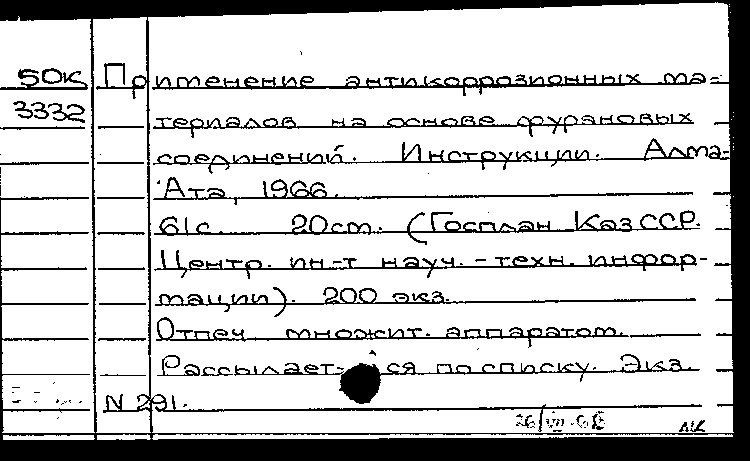 50К Применение антикоррозионных ма=
3332 териалов на основе фурановых
соединений. Инструкции. Алма-
Ата, 1966.
61с. 20см. (Госплан КазССР.
Центр. ин-т науч.-техн. инфор-
мации). 200 экз.
Отпеч. множит. аппаратом.
Рассылает- ся по списку. Экз.
N 291.
26/VII-68